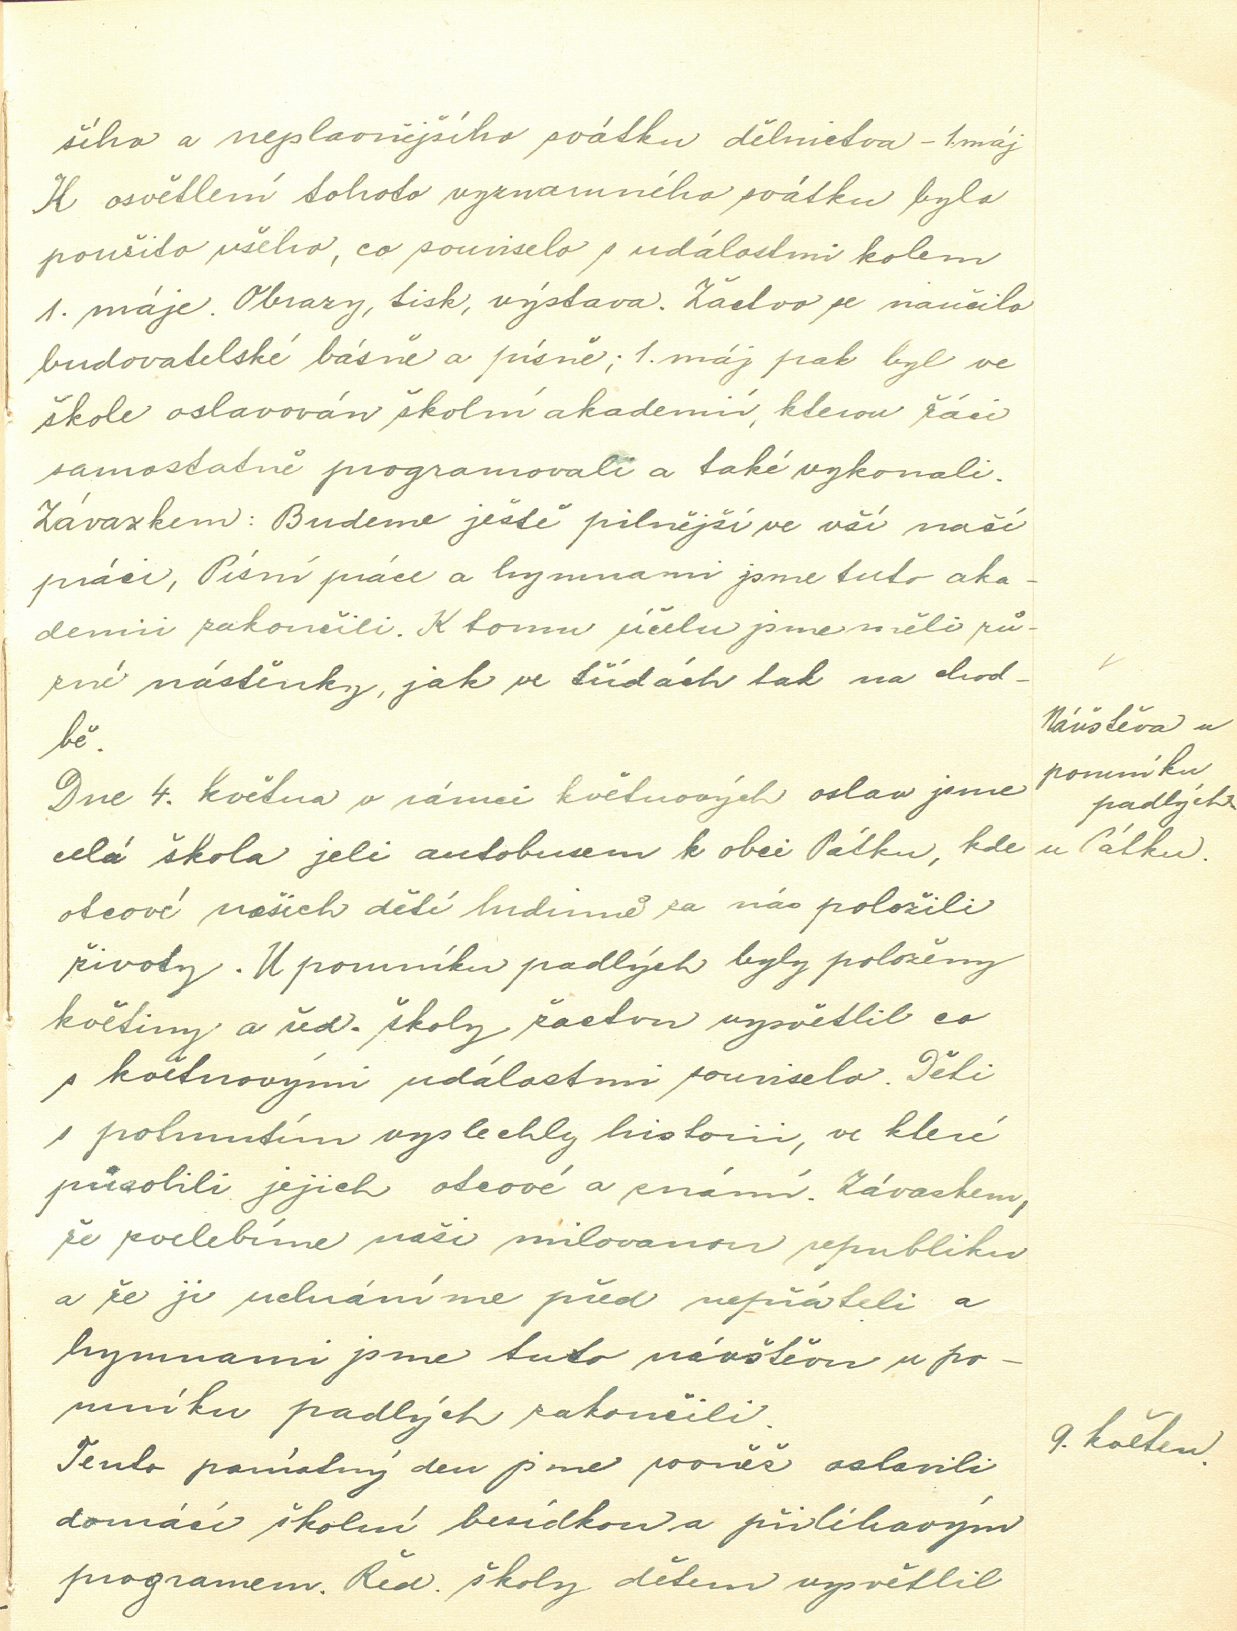 šího a neslavnějšího svátku dělnictva – 1. máj
K osvětlení tohoto významného svátku bylo
použito všeho, co souviselo s událostmi kolem
1. máje. Obrazy, tisk, výstava. Žáctvo se naučilo
budovatelské básně a písně; 1. máj pak byl ve
škole oslavován školní akademií, kterou žáci
samostatně programovali a také vykonali.
Závazkem: Budeme ještě pilnější ve vší naší
práci, Písní práce a hymnami jsme tuto aka-
demii zakončili. K tomu účelu jsme měli rů-
zné nástěnky, jak ve třídách tak na chod-
bě.
Návštěva u
pomníku
padlých
u Pátku.
Dne 4. května v rámci květnových oslav jsme
celá škola jeli autobusem k obci Pátku, kde
otcové našich dětí hrdinně za nás položili
životy. U pomníku padlých byly položeny
květiny a řed. školy žactvu vysvětlil co
s květnovými událostmi souviselo. Děti
s pohnutím vyslechly historii, ve které
působili jejich otcové a známí. Závazkem,
že zvelebíme naši milovanou republiku
a že ji uchráníme před nepřáteli a
hymnami jsme tuto návštěvu u po-
mníku padlých zakončili.
9. květen.
Tento památný den jsme rovněž oslavili
domácí školní besídkou a přiléhavým
programem. Řed. školy dětem vysvětlil